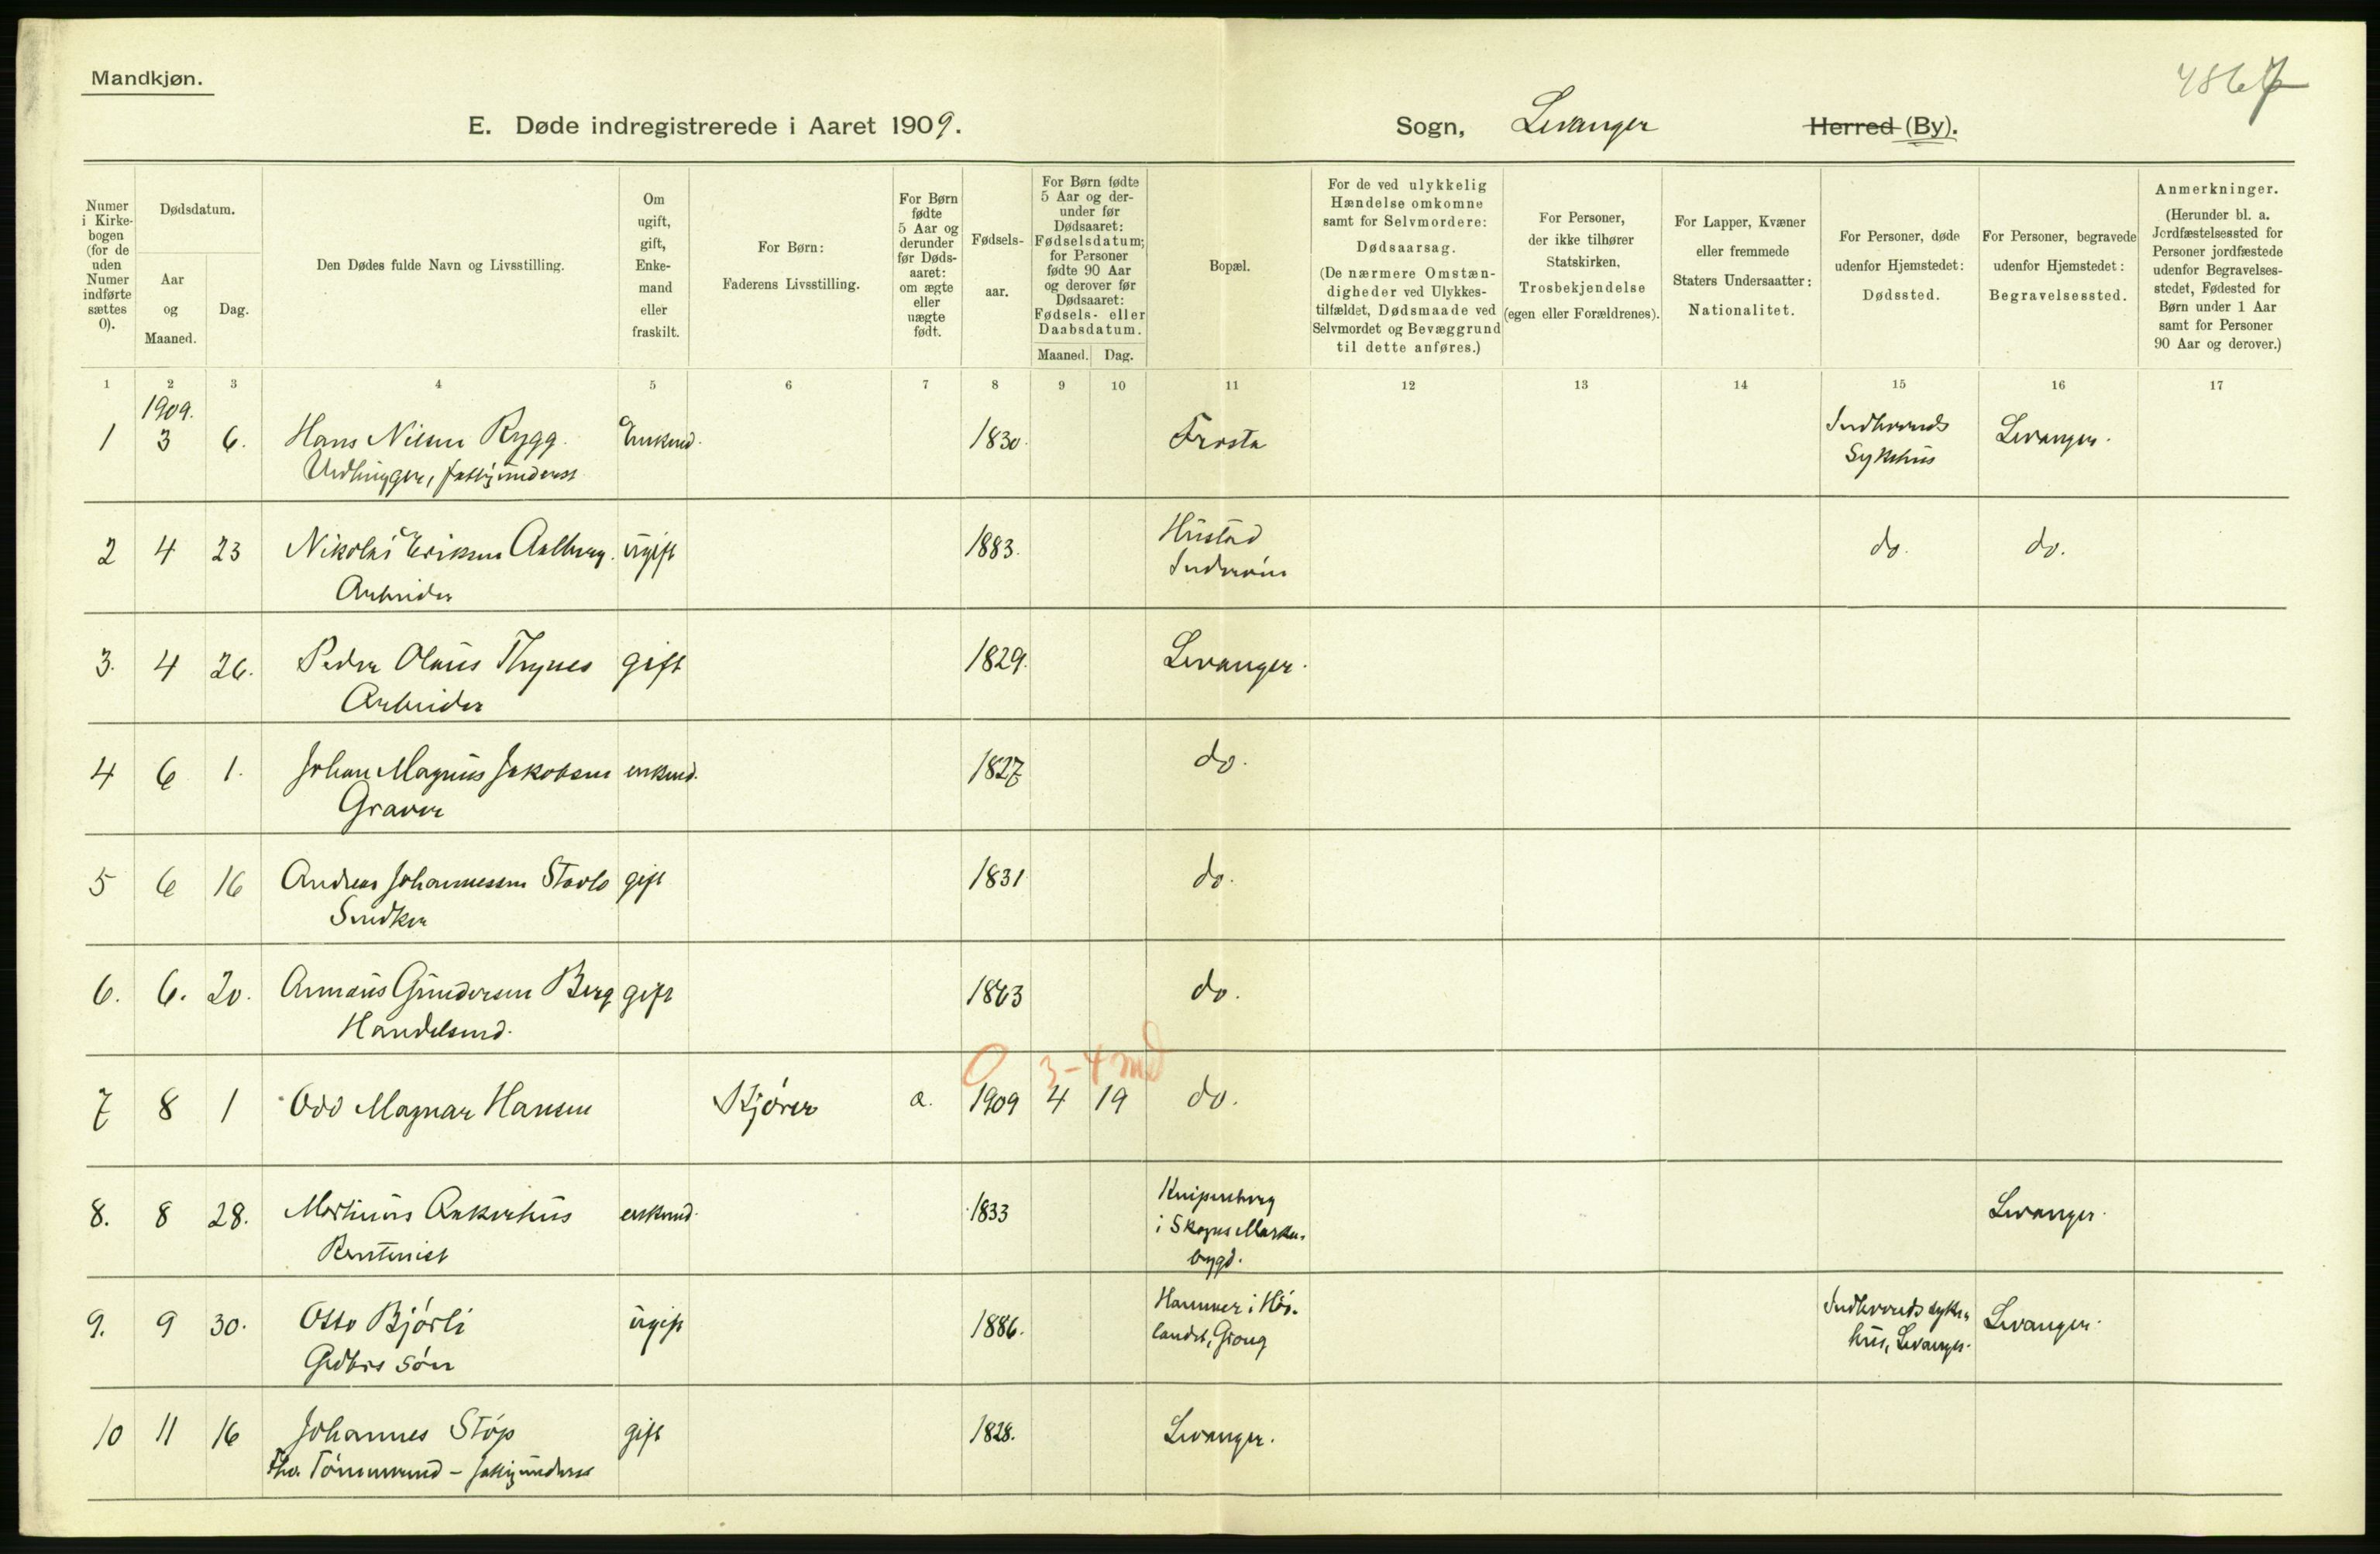 Mandkjøn.
4867
E. Døde indregistrerede i Aaret 1909. Sogn, Levanger Herred (By).
Numer i Kirkebogen (for de uden Numer indførte sættes 0).
Dødsdatum.
Aar og Maaned.
Dag.
Den Dødes fulde Navn og Livsstilling.
Om ugift, gift, Enkemand eller fraskilt.
For Børn: Faderens Livsstilling.
For Børn fødte 5 Aar og derunder før Dødsaaret: om ægte eller uægte født.
Fødselsaar.
For Børn fødte 5 Aar og derunder før Dødsaaret: Fødselsdatum; for Personer fødte 90 Aar og derover før Dødsaaret: Fødsels- eller Daabsdatum.
Maaned. Dag.
Bopæl.
For de ved ulykkelig Hændelse omkomne samt for Selvmordere: Dødsaarsag. (De nærmere Omstændigheder ved Ulykkestilfældet, Dødsmaade ved Selvmordet og Bevæggrund til dette anføres.)
For Personer, der ikke tilhører Statskirken, Trosbekjendelse (egen eller Forældrenes).
For Lapper, Kvæner eller fremmede Staters Undersaatter: Nationalitet.
For Personer, døde udenfor Hjemstedet: Dødssted.
For Personer, begravede udenfor Hjemstedet: Begravelsessted.
Anmerkninger. (Herunder bl. a. Jordfæstelsessted for Personer jordfæstede udenfor Begravelsesstedet, Fødested for Børn under 1 Aar samt for Personer 90 Aar og derover.)
1 2 3 4 5 6 7 8 9 10 11 12 13 14 15 16 17
1909.
1 3 6. Hans Nilsen Rygg. Enkemd. 1830. Frosta Indherreds Levanger.
fattigunderst. Sykehus
2 4 23 Nikolai Eriksen Aalberg. ugift 1883. Hustad do. do.
Arbeider Inderøen
3. 4 26. Peder Olaus Thynes gift 1829. Levanger.
Arbeider
4 6 1. Johan Magnus Jakobsen enkemd. 1827 do.
Graver
5 6 16 Andreas Johannessen Stavlo gift 1831 do.
Snedker
6. 6. 20. Gundersen Berg gift 1863 do.
Handelsmd.
0 3-4 md
7 8 1 Odd Magnar Hansen Kjører a. 1909 4 19 do.
8. 8 28. Martinus Ankerhus enkemd. 1833 Levanger.
Rentenist i Skogns Markabygd.
9. 9 30. Otto Bjørli ugift 1886. Hammer i Høilandet, Grong Indherreds sykehus, Levanger. Levanger.
Gdbrs søn
10 11 16 Johannes Støp gift 1828. Levanger.
Tømmermd - fattigunderst